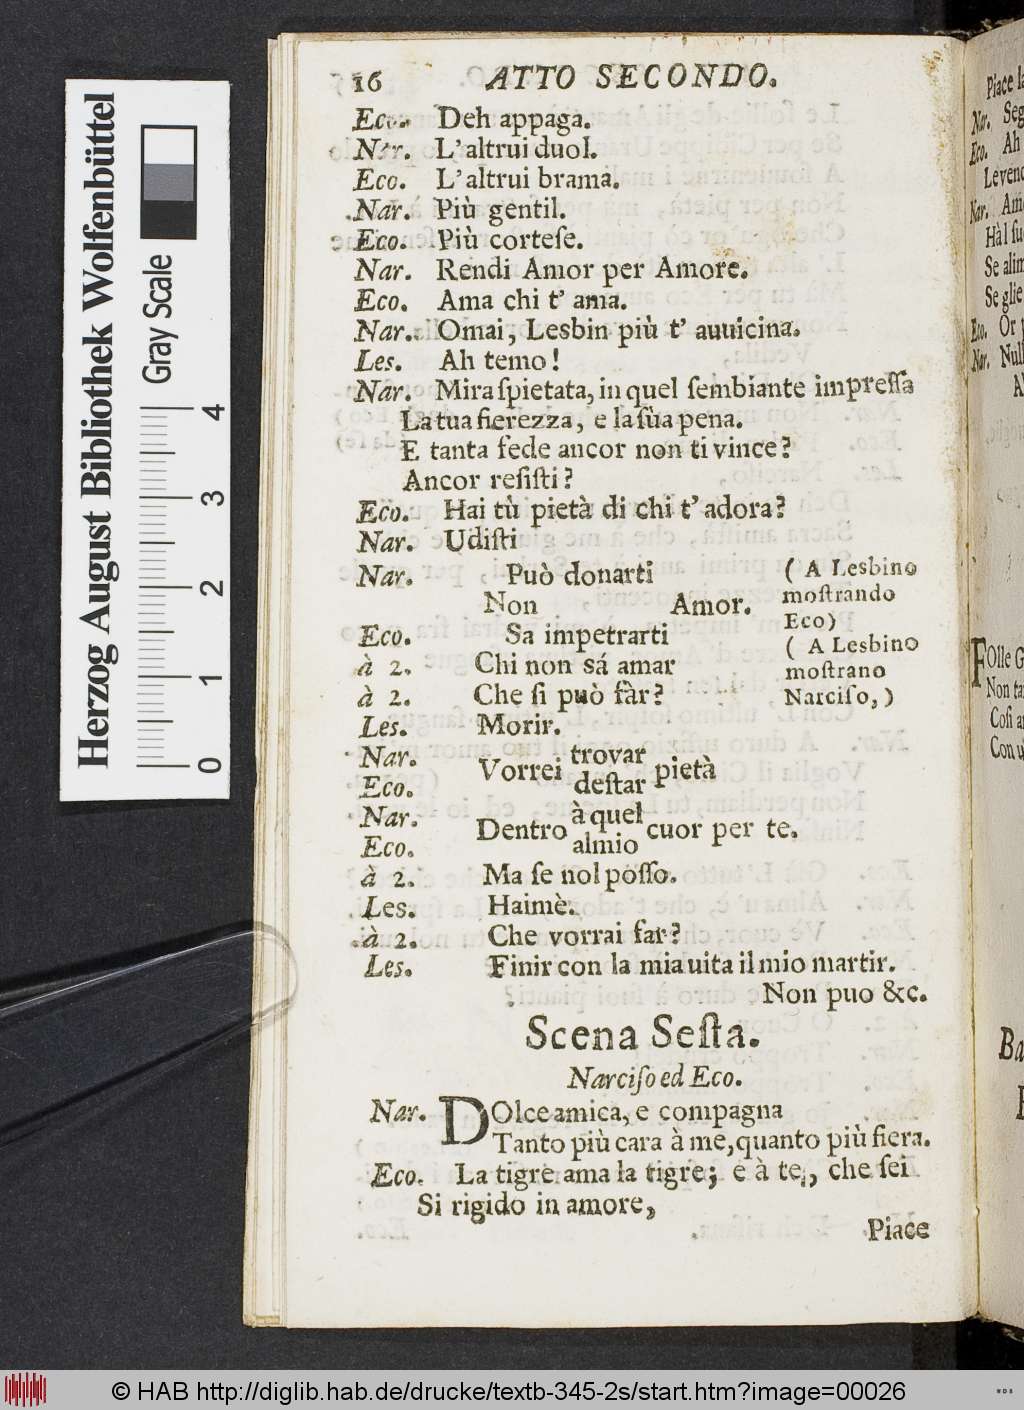 16 ATTO SECONDO.
Eco. Deh appaga.
Nar. L'altrui duol.
Eco. L'altrui brama.
Nar. Più gentil.
Eco. Più corteſe.
Nar. Rendi Amor per Amore.
Eco. Ama chi t' ama.
Nar. Omai, Lesbin più t' auuicina.
Les. Ah temo!
Nar. Mira ſpietata, in quel ſembiante impreſſa
La tua fierezza, e la ſùa pena.
E tanta fede ancor non ti vince?
Ancor reſiſti?
Eco. Hai tù pietà di chi t' adora?
Nar. Udiſti
Nar. Può donarti ( A Lesbino
moſtrando
Non Amor.
Eco)
Eco. Sa impetrarti
( A Lesbino
à 2. Chi non sá amar
moſtrano
à 2. Che ſi può fàr?
Narciſo,)
Les. Morir.
Nar. trovar
Vorrei pietà
Eco. deſtar
Nar. à quel
Dentro cuor per te.
Eco. almio
à 2. Ma ſe nol poſſo.
Les. Haimè.
à 2. Che vorrai far?
Les. Finir con la mia uita il mio martir.
Non puo &c.
Scena Seſta.
Narciſo ed Eco.
Nar. DOlce amica, e compagna
Tanto più cara à me, quanto più fiera.
Eco. La tigre ama la tigre; e à te, che ſei
Si rigido in amore,
Piace
Piace la
Nar. Seg
Eco. Ah
Le vend
Nar. Amo
Hà l ſu
Se alim
Se glie
Eco. Or
Nar. Null
A
FOlle G
Non tan
Coſi a
Con u
Ba
Herzog August Bibliothek Wolfenbüttel
Gray Scale
0 1 2 3 4
© HAB http://diglib.hab.de/drucke/textb-345-2s/start.htm?image=00026